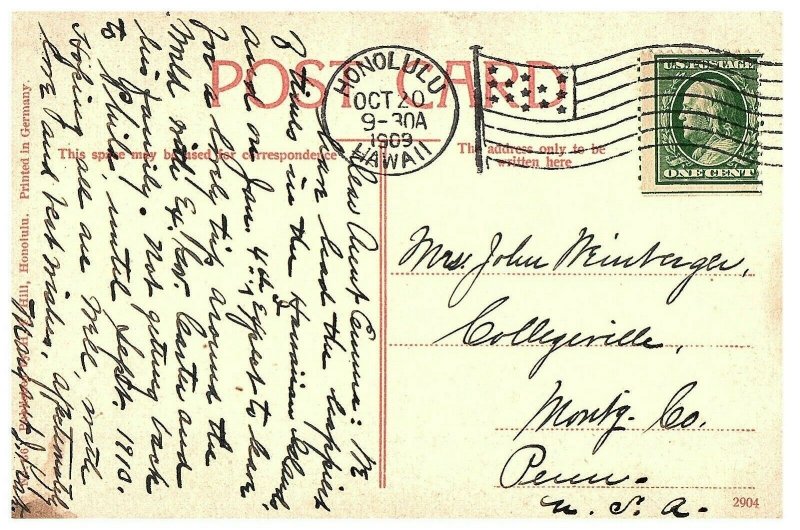 POST CARD
This space may be used for correspondence
The address only to be
written here
HONOLULU
OCT 20
9-30A
1909
HAWAII
U.S. POSTAGE
ONE CENT
Dear Aunt Emma: We
have had the happiest
of times in the Hawaiian Islands,
and on Jan. 4th, expect to leave
for a lovely trip around the
World with Ex. Gov. Carter and
his family. Not getting back
to Phila. until Sept. 1910.
Hoping all are well, with
love and best wishes, affectionately
Mrs. John Weinberger,
Collegeville,
Montg. Co.
Penn.
U. S. A.
2904
Hill, Honolulu. Printed in Germany.